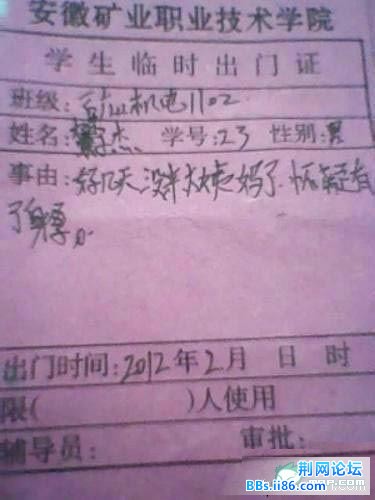 安徽矿业职业技术学院
学生临时出门证
班级: 矿山机电1102
姓名: 杰 学号: 23 性别: 男
事由: 好几天没来大姨妈了. 怀疑有
了身孕。
出门时间: 2012年2月 日 时
限( )人使用
辅导员: 审批:
荆网论坛
BBs.ii86.com